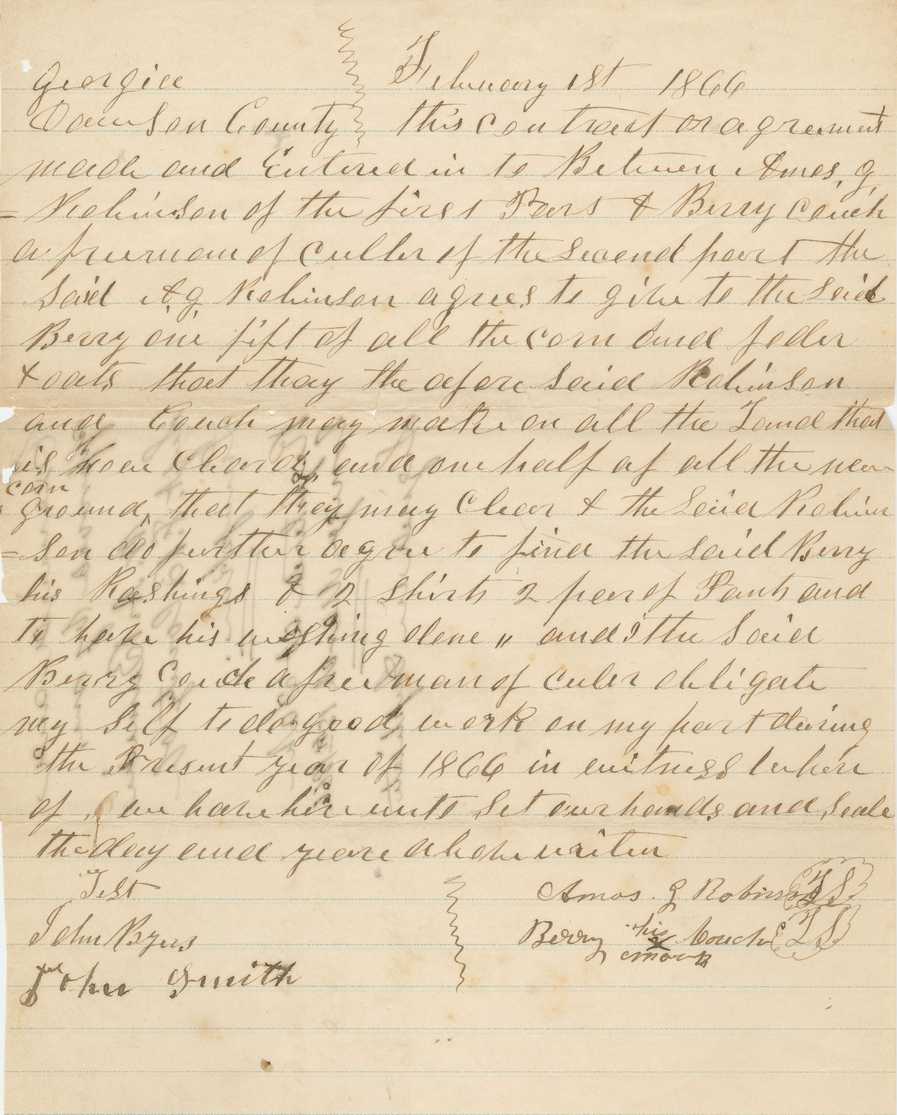 Georgia February 1st 1866
Dawson County this contract or agreement
made and Entered in to Between Amos, g
= Robinson of the first Part & Berry Couch
a freeman of culler of the Second part the
Said A g Robinson agrees to give to the Said
Berry one fift of all the corn and foder
& oats that thay the afore Said Robinson
and Couch may make on all the Land that
is now cleard, and one half of all the new
corn
ground, that they may clear & the Said Robin
= son do further agree to find the Said Berry
his Rashings & 2 Shirts 2 par of Pants and
to have his washing done „ and I the Said
Berry Couch a free man of culer obligate
my Self to do good work on my part during
the Present year of 1866 in witness when
of, we have here unto Set our hands and Seale
the day and year above writen
Test Amos. G Robinson L S
John Byers Berry his x mark Couch L S
John Smith